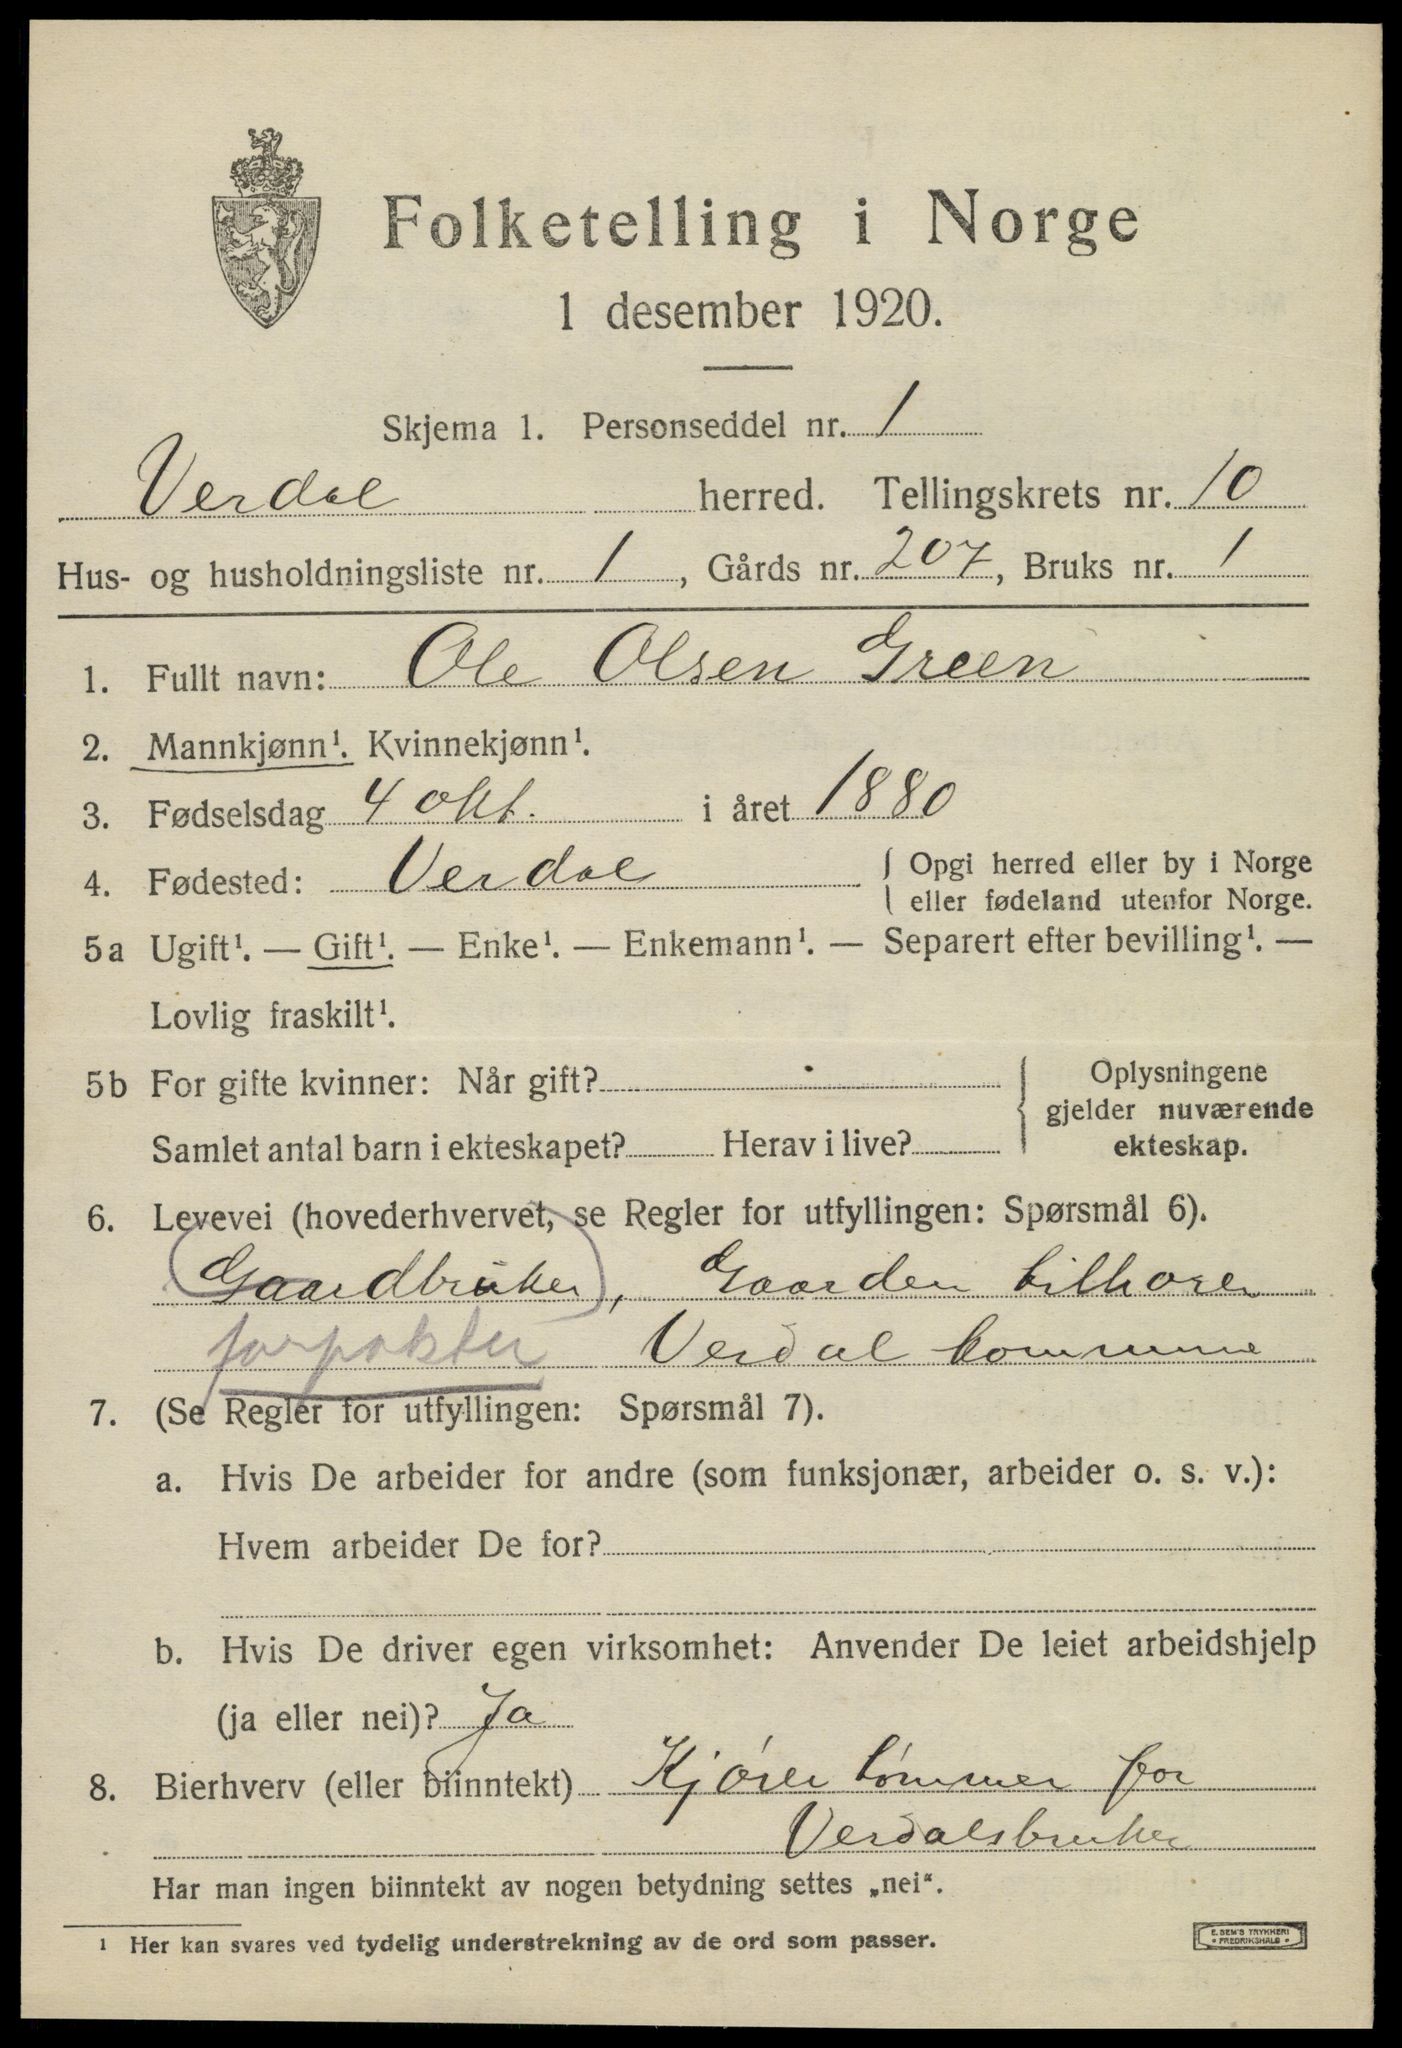 Folketelling i Norge
1 desember 1920.
Skjema 1. Personseddel nr. 1
Verdal herred. Tellingskrets nr. 10
Hus- og husholdningsliste nr. 1, Gårds nr. 207, Bruks nr. 1
1. Fullt navn: Ole Olsen Green
2. Mannkjønn¹. Kvinnekjønn¹.
3. Fødselsdag 4 okt. i året 1880
4. Fødested: Verdal { Opgi herred eller by i Norge
eller fødeland utenfor Norge.
5a Ugift¹. — Gift¹. — Enke¹. — Enkemann¹. — Separert efter bevilling¹. —
Lovlig fraskilt¹.
5b For gifte kvinner: Når gift?
Samlet antal barn i ekteskapet? Herav i live?
{ Oplysningene
gjelder nuværende
ekteskap.
6. Levevei (hovederhvervet, se Regler for utfyllingen: Spørsmål 6).
(Gaardbruker), Gaarden tilhører
forpakter Verdal kommune
7. (Se Regler for utfyllingen: Spørsmål 7).
a. Hvis De arbeider for andre (som funksjonær, arbeider o. s. v.):
Hvem arbeider De for?
b. Hvis De driver egen virksomhet: Anvender De leiet arbeidshjelp
(ja eller nei)? Ja
8. Bierhverv (eller biinntekt) Kjører tømmer for
Verdalsbruket
Har man ingen biinntekt av nogen betydning settes „nei“.
¹ Her kan svares ved tydelig understrekning av de ord som passer.
E. SEM'S TRYKKERI
• FREDRIKSHALD •